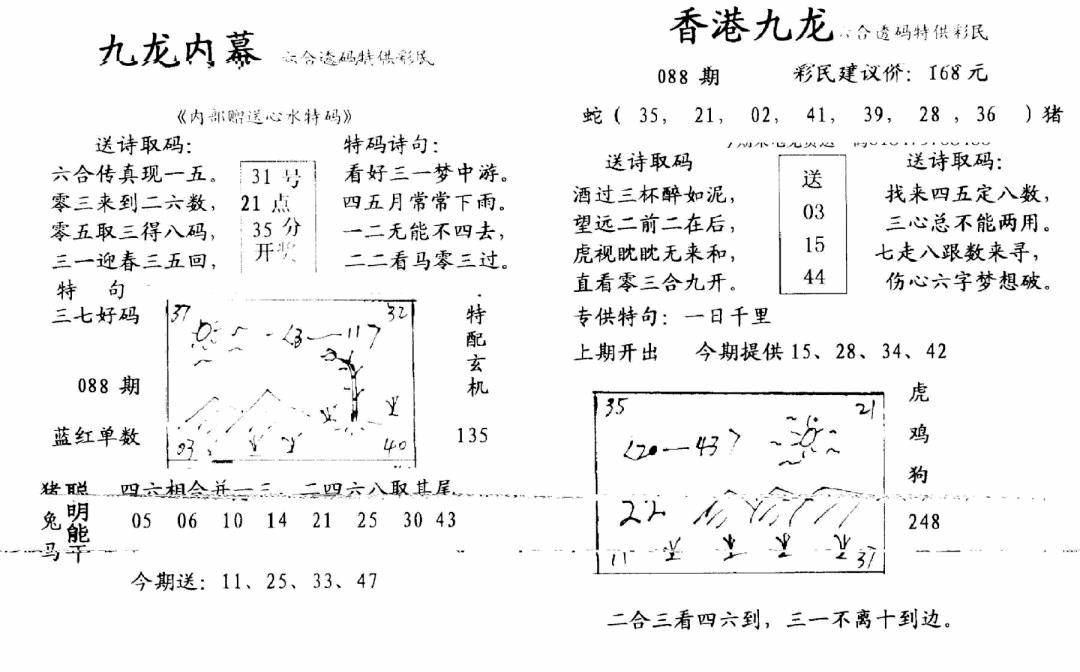 九龙内幕 六合透码特供彩民
《内部赠送心水特码》
送诗取码：
六合传真现一五。
零三来到二六数，
零五取三得八码，
三一迎春三五回，
31 号
21 点
35 分
开奖
特码诗句：
看好三一梦中游。
四五月常常下雨。
一二无能不四去，
二二看马零三过。
特 句
三七好码
088 期
蓝红单数
37 32
〈3—117
03 40
特配玄机
135
猪兔马
聪明能干
四六相合并一三，二四六八取其尾
05 06 10 14 21 25 30 43
今期送：11、25、33、47
香港九龙 六合透码特供彩民
088 期 彩民建议价：168 元
蛇（ 35, 21, 02, 41, 39, 28 , 36 ）猪
送诗取码
酒过三杯醉如泥，
望远二前二在后，
虎视眈眈无来和，
直看零三合九开。
送
03
15
44
送诗取码：
找来四五定八数，
三心总不能两用。
七走八跟数来寻，
伤心六字梦想破。
专供特句：一日千里
上期开出 今期提供 15、28、34、42
35 21
〈20—43〉
22
11 37
虎
鸡
狗
248
二合三看四六到，三一不离十到边。